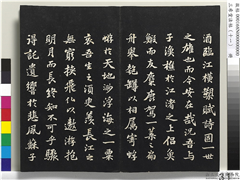 酒臨江橫槊賦詩固一世
之雄也而今安在哉況吾與
子漁樵於江渚之上侶魚
鰕而友麋鹿駕一葉之扁
舟舉匏樽以相屬寄蜉
蝣於天地渺浮海之一粟
哀吾生之須臾羨長江之
無窮挾飛仙以遨遊抱
明月而長終知不可乎驟
得託遺響於悲風蘇子